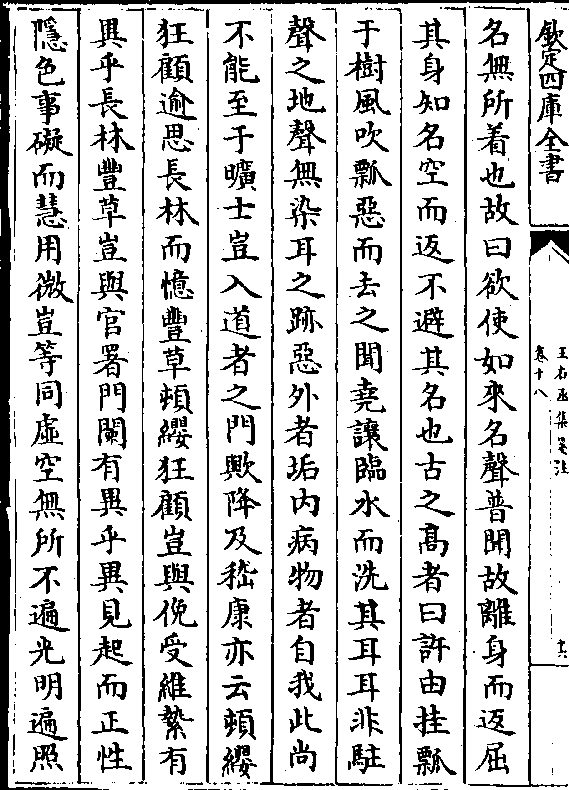 欽定四庫全書
王右丞集箋注
卷十八
名無所着也故曰欲使如來名聲普聞故離身而返屈
其身知名空而返不避其名也古之高者曰許由挂瓢
于樹風吹瓢惡而去之聞堯讓臨水而洗其耳耳非駐
聲之地聲無染耳之跡惡外者垢内病物者自我此尚
不能至于曠士豈入道者之門歟降及嵇康亦云頓纓
狂顧逾思長林而憶豐草頓纓狂顧豈與俛受維縶有
異乎長林豐草豈與官署門闌有異乎異見起而正性
隱色事礙而慧用微豈等同虚空無所不遍光明遍照